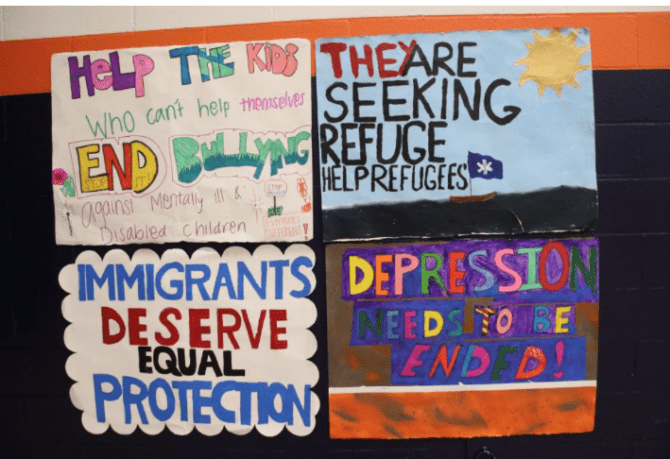 HELP THE KIDS
Who can't help themselves
END BULLYING
against Mentally ill &
Disabled children
STOP
THEY ARE
SEEKING
REFUGE
HELP REFUGEES
IMMIGRANTS
DESERVE
EQUAL
PROTECTION
DEPRESSION
NEEDS TO BE
ENDED!